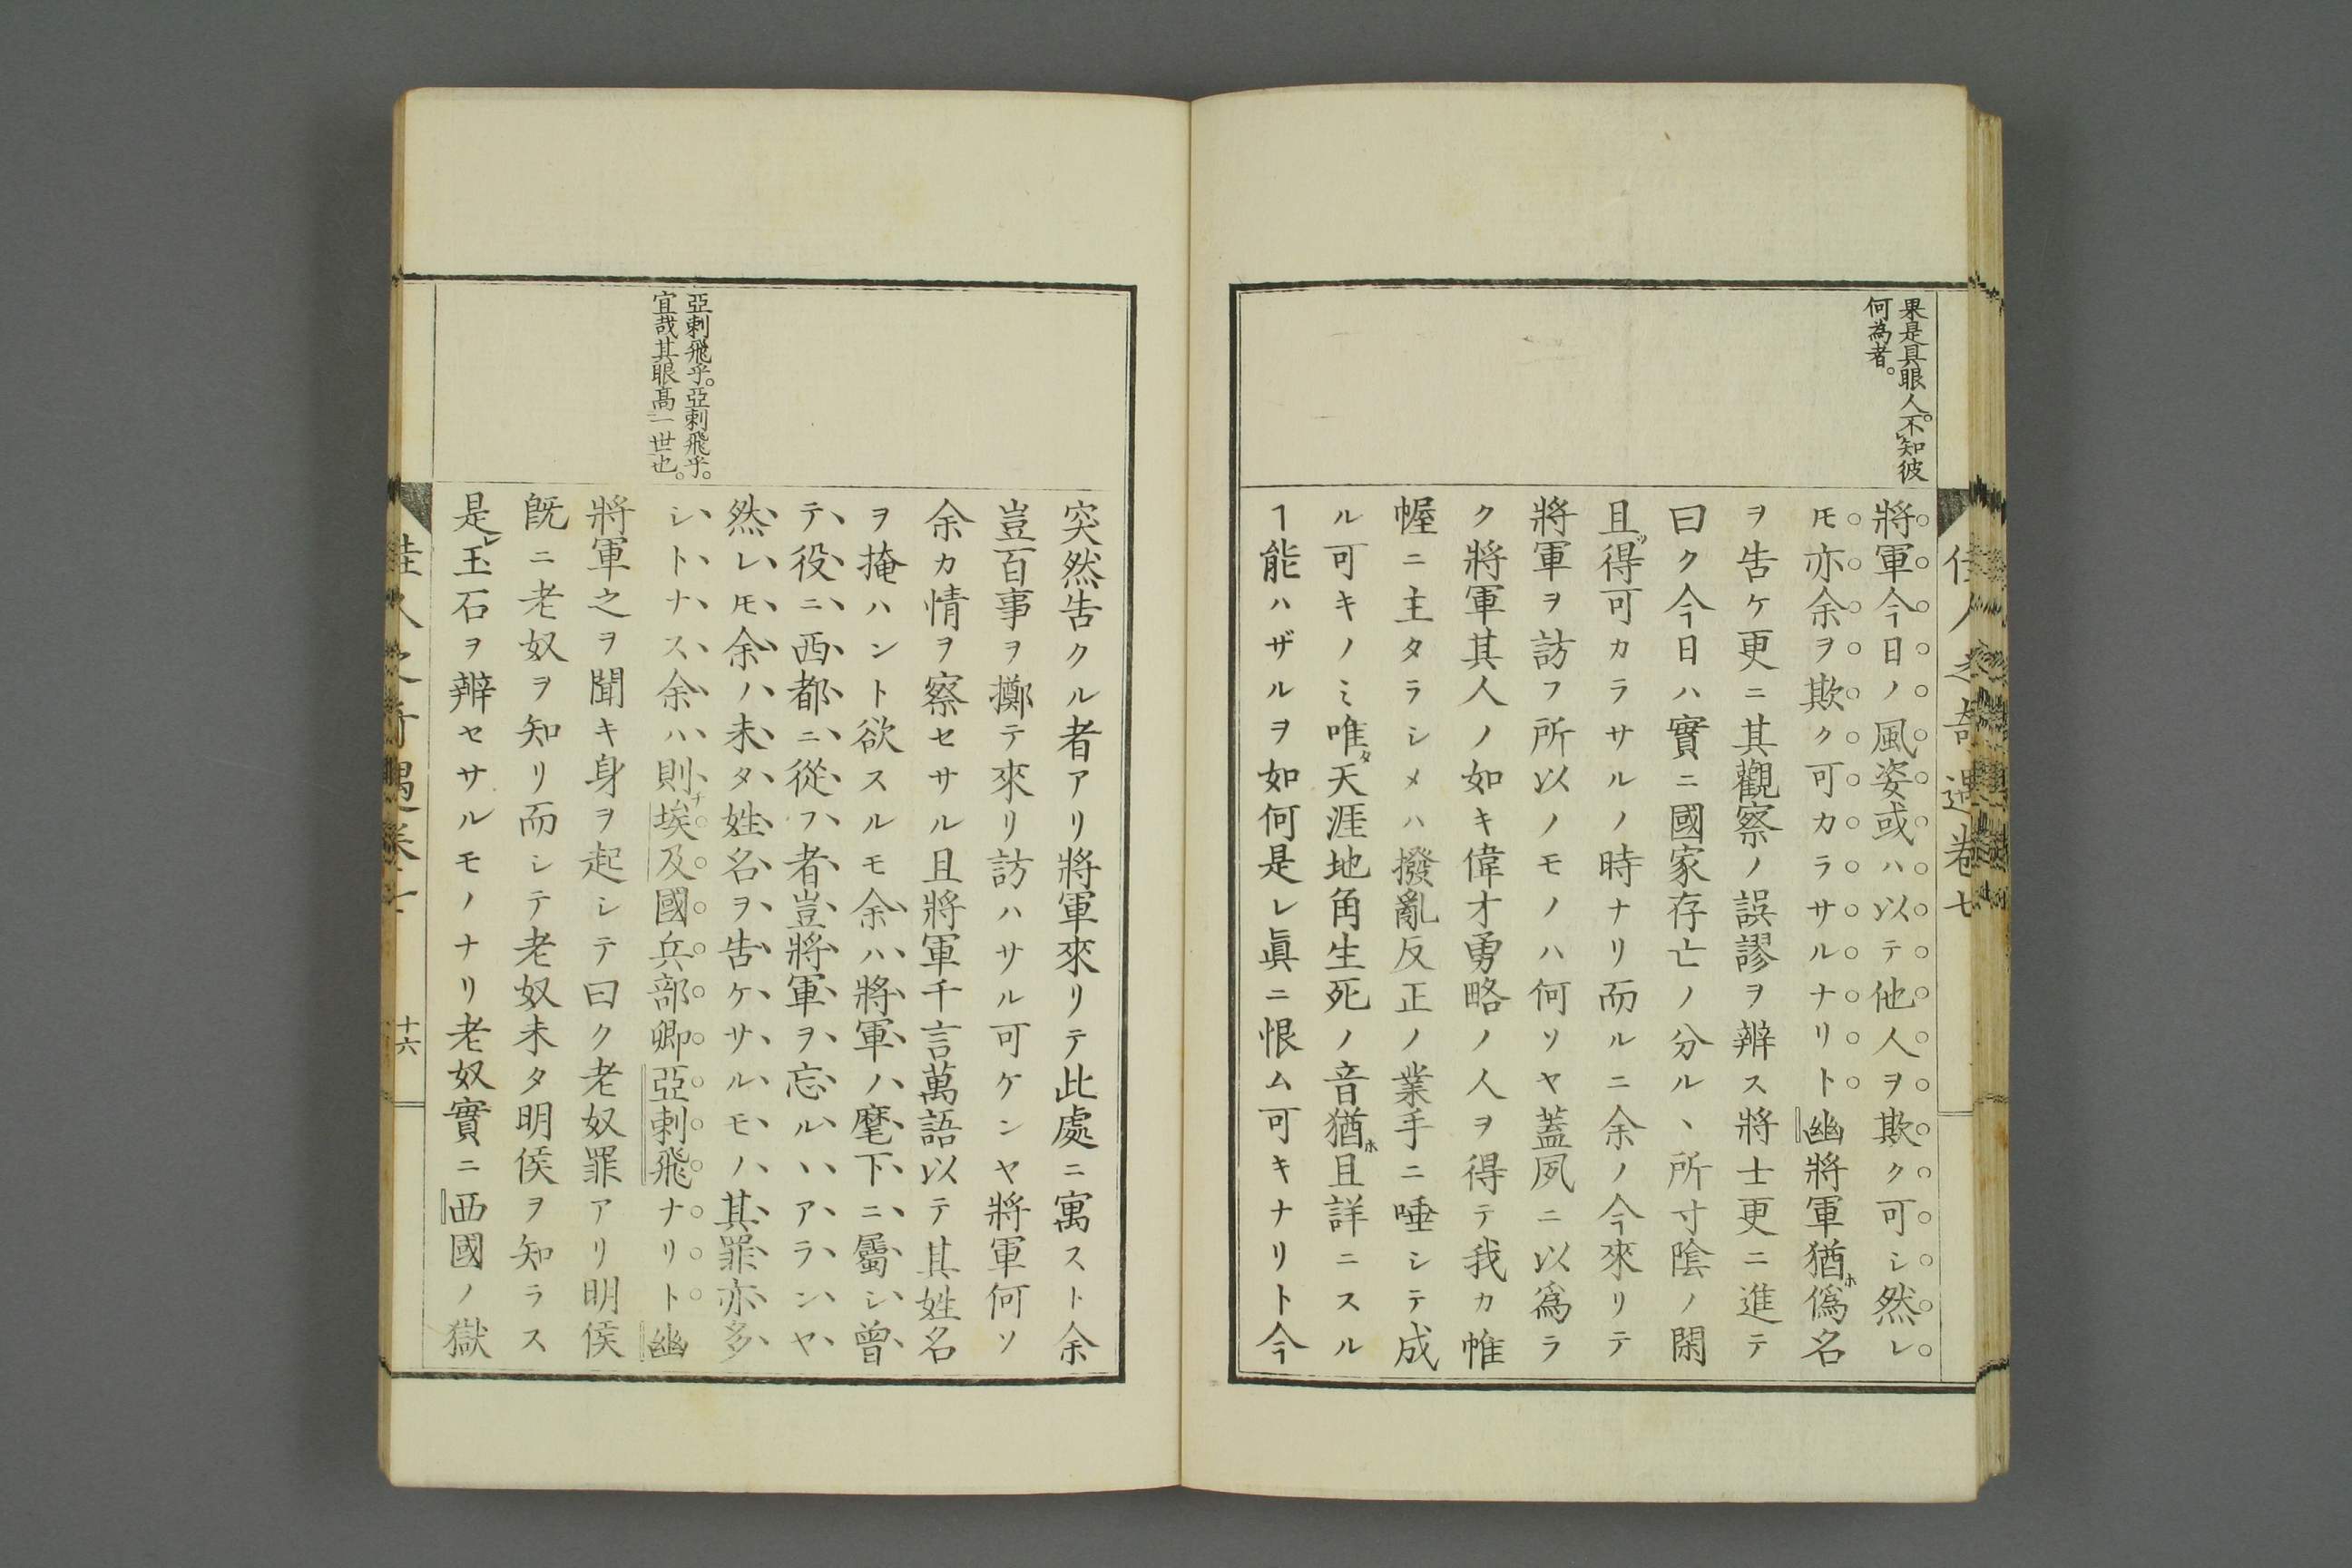 佳人之奇遇卷七
果是具眼人。不知彼
何為者。
將軍今日ノ風姿或ハ以テ他人ヲ欺ク可シ然レ
𪜈亦余ヲ欺ク可カラサルナリト幽將軍猶ホ僞名
ヲ告ケ更ニ其觀察ノ誤謬ヲ辨ス將士更ニ進テ
曰ク今日ハ實ニ國家存亡ノ分ルヽ所寸陰ノ閑
且ツ得可カラサルノ時ナリ而ルニ余ノ今來リテ
將軍ヲ訪フ所以ノモノハ何ソヤ蓋夙ニ以爲ラ
ク將軍其人ノ如キ偉才勇略ノ人ヲ得テ我カ帷
幄ニ主タラシメハ撥亂反正ノ業手ニ唾シテ成
ル可キノミ唯タ天涯地角生死ノ音猶ホ且詳ニスル
ヿ能ハザルヲ如何是レ眞ニ恨ム可キナリト今
亞剌飛乎。亞剌飛乎。
宜哉其眼高二一世也。
突然告クル者アリ將軍來リテ此處ニ寓スト余
豈百事ヲ擲テ來リ訪ハサル可ケンヤ將軍何ソ
余カ情ヲ察セサル且將軍千言萬語以テ其姓名
ヲ掩ハント欲スルモ余ハ將軍ノ麾下ニ屬シ曾
テ役ニ西都ニ從フ者豈將軍ヲ忘ルヽアランヤ
然レ𪜈余ハ未タ姓名ヲ告ケサルモノ其罪亦多
シトナス余ハ則チ埃及國兵部卿亞剌飛ナリト幽
將軍之ヲ聞キ身ヲ起シテ曰ク老奴罪アリ明侯
旣ニ老奴ヲ知リ而シテ老奴未タ明侯ヲ知ラス
是レ玉石ヲ辨セサルモノナリ老奴實ニ西國ノ獄
佳人之奇遇卷七
十六